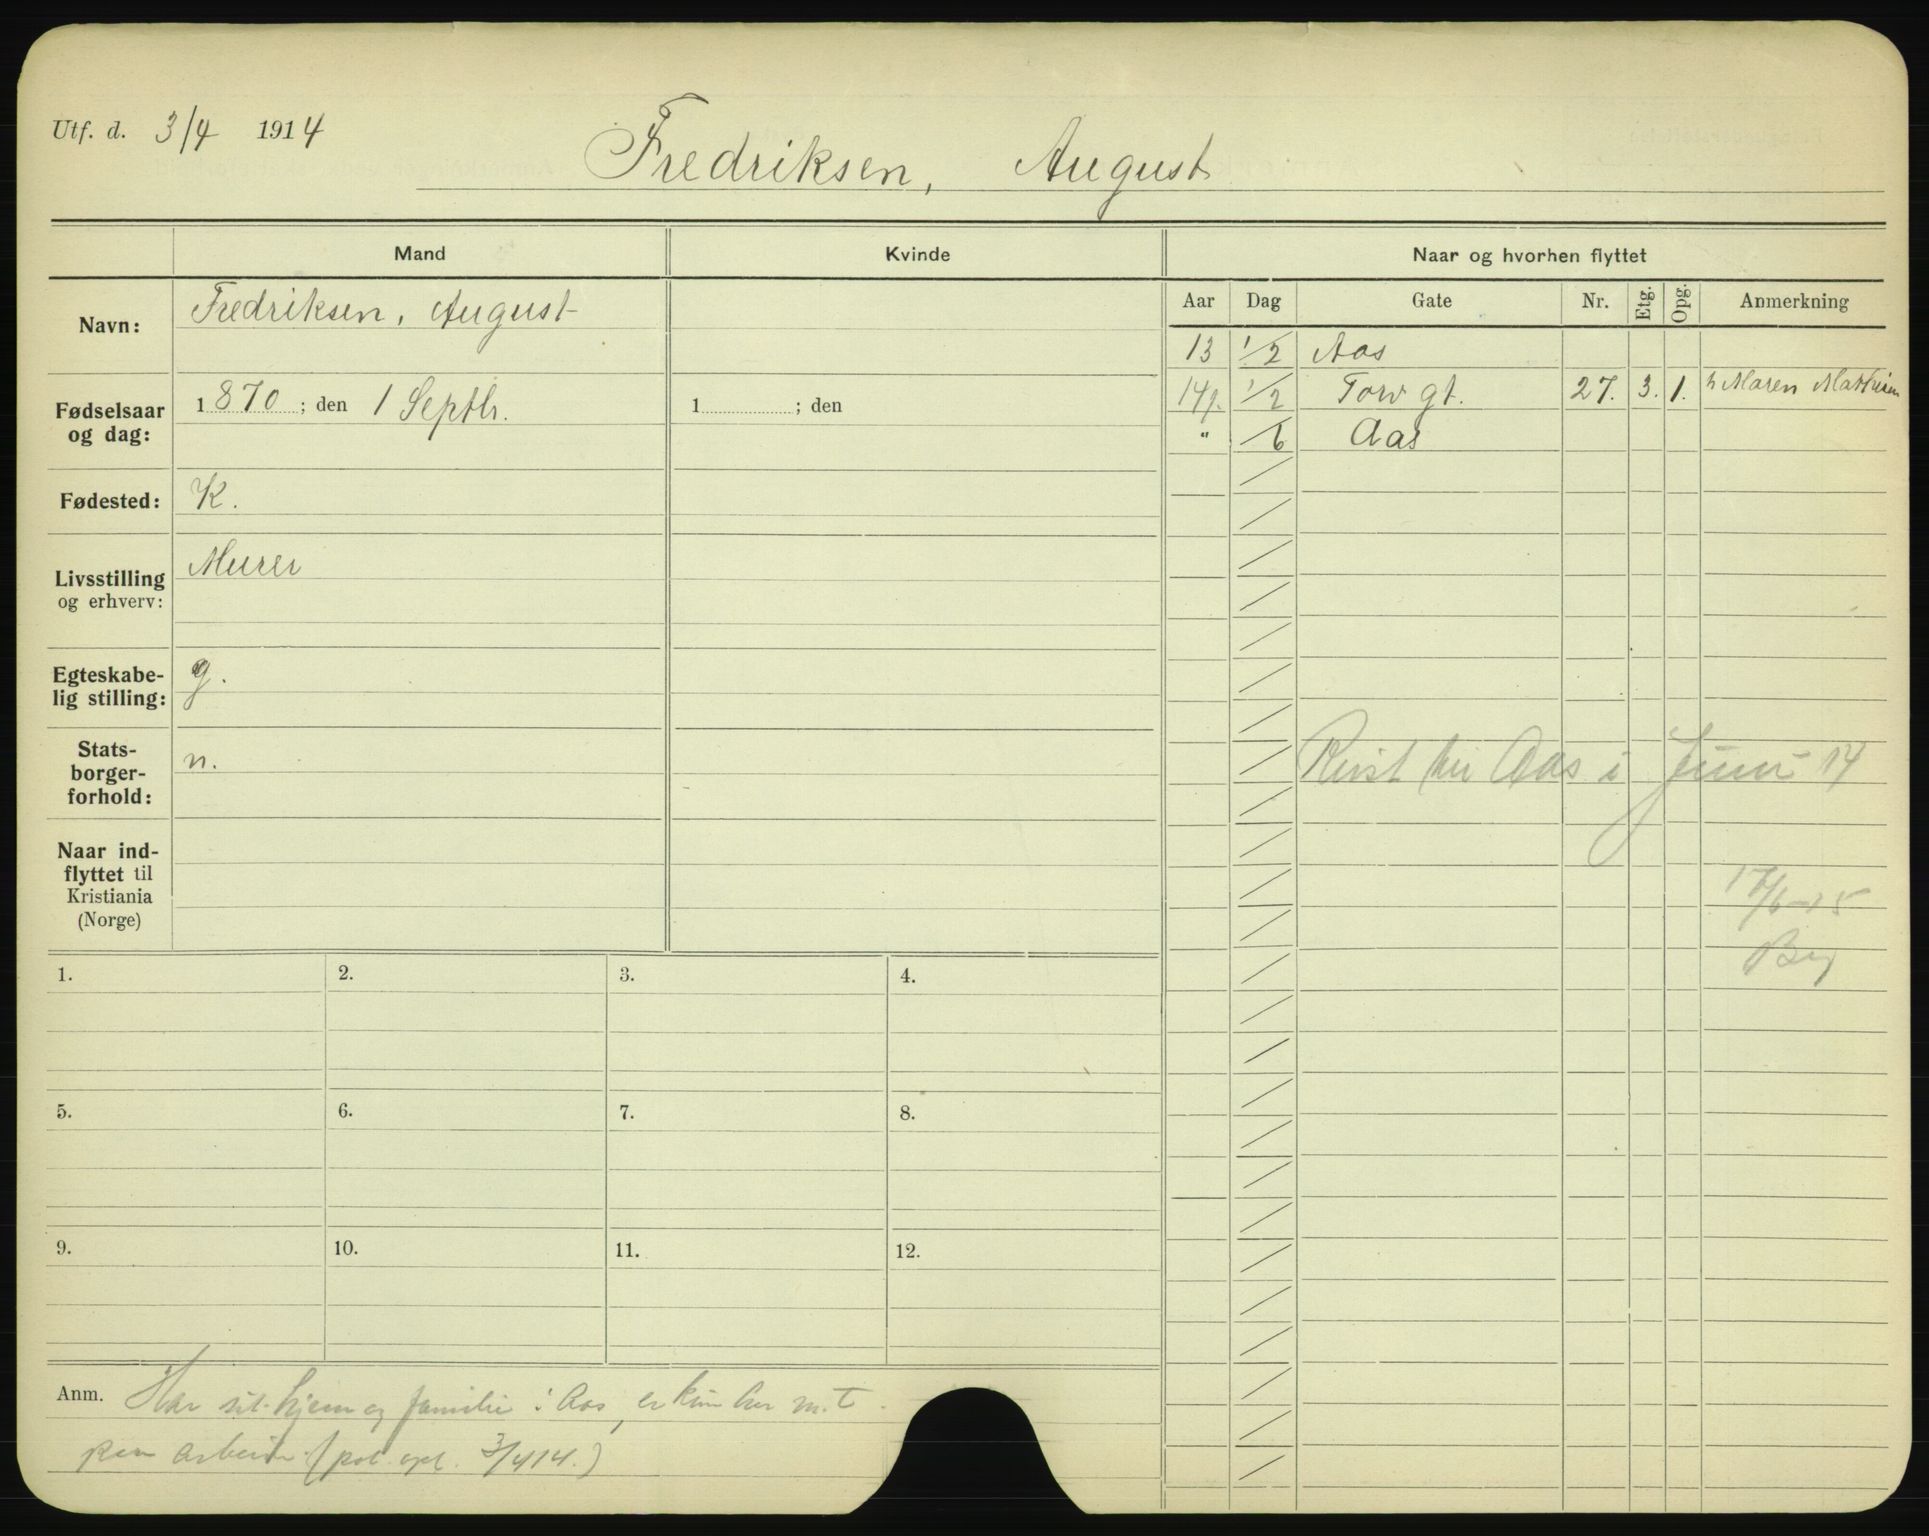 Utf. d. 3/4 1914
Fredriksen, August
Mand
Kvinde
Naar og hvorhen flyttet
Navn:
Fredriksen, August
Fødselsaar og dag:
1870; den 1 Septbr.
1 ; den
Fødested:
K.
Livsstilling og erhverv:
Murer
Egteskabe-
lig stilling:
g.
Stats-
borger-
forhold:
n.
Naar ind-
flyttet til
Kristiania
(Norge)
Aar Dag Gate Nr. Etg. Opg. Anmerkning
13 1/2 Aas
14 1/2 Torvgt. 27. 3. 1. h Maren Mathisen
" /6 Aas
Reist til Aas i Juni 14
17/6-15
By
1. 2. 3. 4.
5. 6. 7. 8.
9. 10. 11. 12.
Anm. Har sit hjem og familie i Aas, er kun her m.t.
paa arbeide (pol. opl. 3/4 14.)